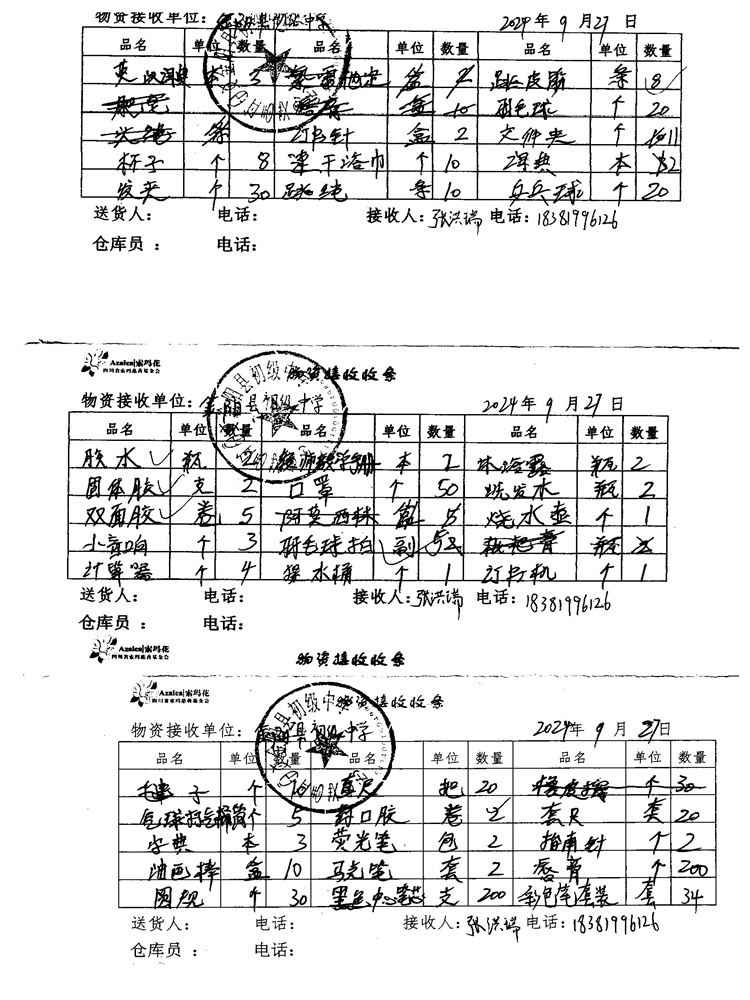 物资接收单位: 县初级中学 2024年9月27日
品名 单位 数量 品名 单位 数量 品名 单位 数量
3 盒 2 跳皮筋 条 8
盒 10 羽毛球 个 20
条 订书针 盒 2 文件夹 个 11
杯子 个 8 速干浴巾 个 10 词典 本 2
发夹 个 30 跳绳 条 10 乒乓球 个 20
送货人: 电话: 接收人: 张洪瑞 电话: 18381996126
仓库员: 电话:
Azalea|索玛花
四川省索玛慈善基金会
物资接收收条
物资接收单位: 金阳县初级中学 2024年9月27日
品名 单位 数量 品名 单位 数量 品名 单位 数量
胶水 瓶 2 本 2 沐浴露 瓶 2
固体胶 支 2 口罩 个 50 洗发水 瓶 2
双面胶 卷 5 阿莫西林 盒 5 烧水壶 个 1
小音响 个 3 羽毛球拍 副 52 瓶
计算器 个 4 水桶 个 1 订书机 个 1
送货人: 电话: 接收人: 张洪瑞 电话: 18381996126
仓库员: 电话:
Azalea|索玛花
四川省索玛慈善基金会
物资接收收条
Azalea|索玛花
四川省索玛慈善基金会
物资接收收条
物资接收单位: 金阳县初级中学 2024年9月27日
品名 单位 数量 品名 单位 数量 品名 单位 数量
毽子 个 直尺 把 20 个 30
个 5 封口胶 卷 2 套尺 套 20
字典 本 3 荧光笔 包 2 指南针 个 2
油画棒 盒 10 马克笔 套 2 唇膏 个 200
圆规 个 30 黑色中心笔芯 支 200 套装 套 34
送货人: 电话: 接收人: 张洪瑞 电话: 18381996126
仓库员: 电话: